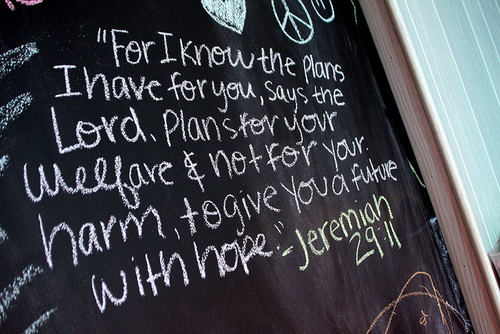 "For I know the plans
I have for you, says the
Lord. Plans for your
Welfare & not for your
harm, to give you a future
with hope."
-Jeremiah
29:11